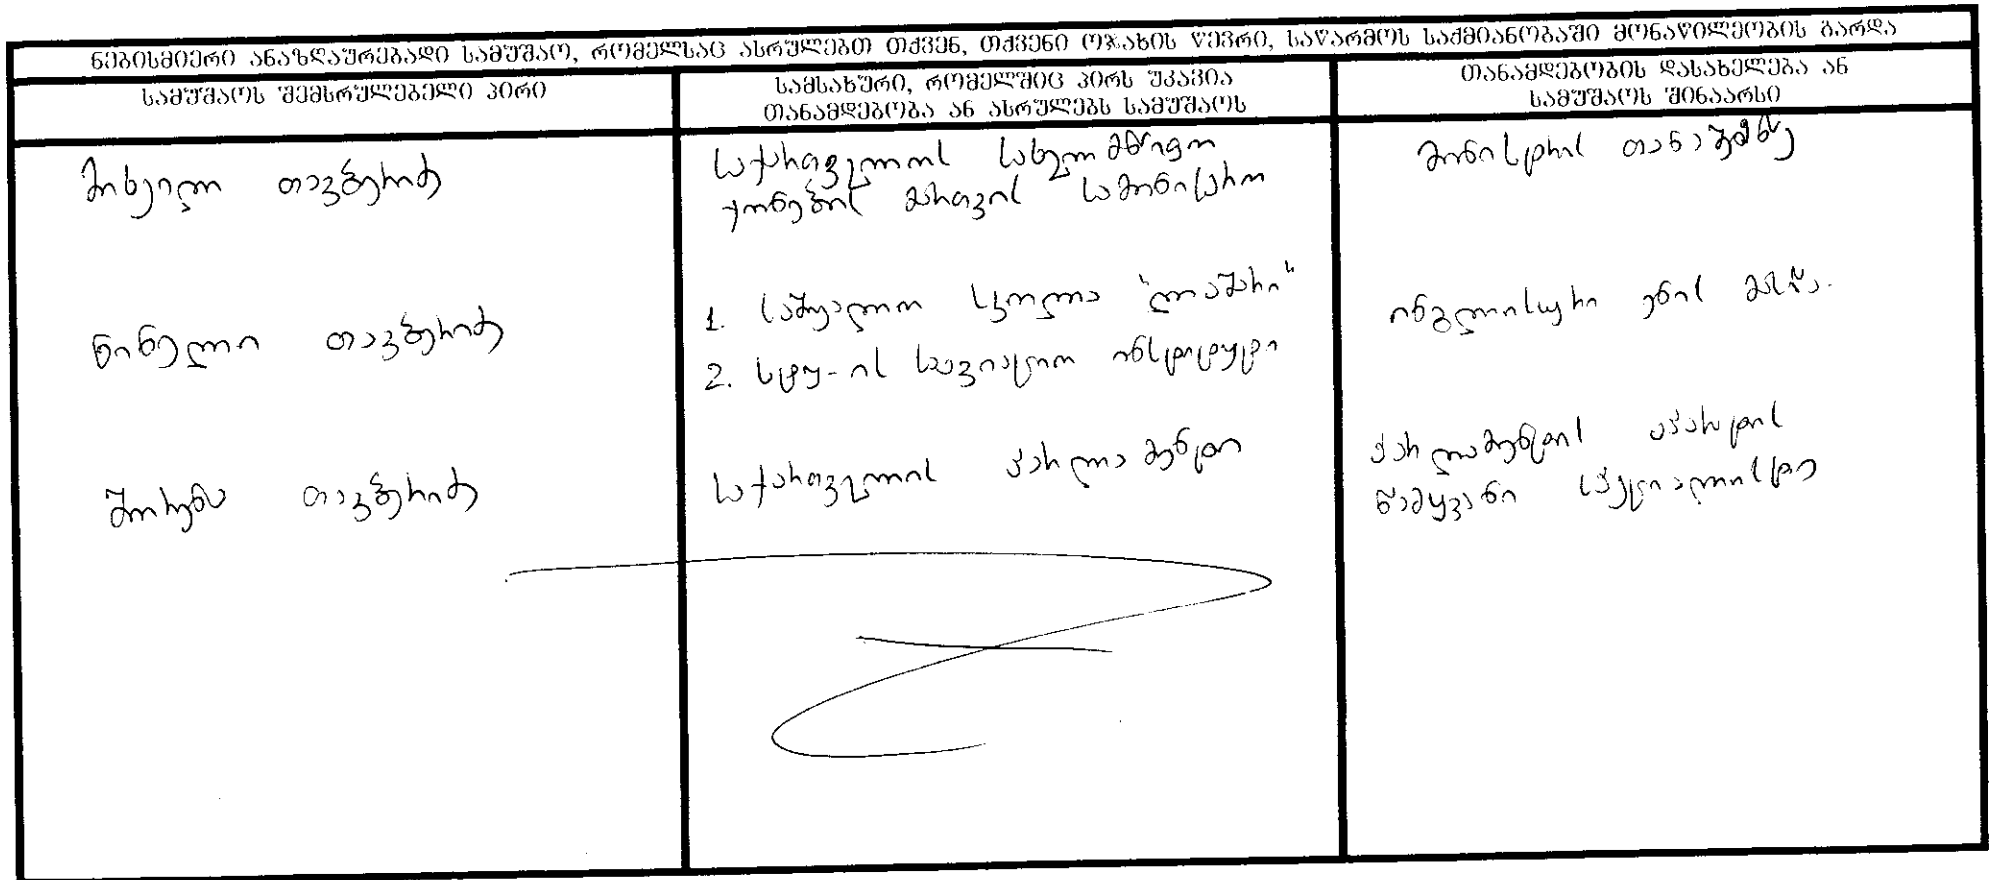 ნებისმიერი ანაზღაურებადი სამუშაო, რომელსაც ასრულებთ თქვენ, თქვენი ოჯახის წევრი, საწარმოს საქმიანობაში მონაწილეობის გარდა
სამუშაოს შემსრულებელი პირი
სამსახური, რომელშიც პირს უკავია
თანამდებობა ან ასრულებს სამუშაოს
თანამდებობის დასახელება ან
სამუშაოს შინაარსი
მიხეილ
საქართველოს სახელმწიფო
ქონების მართვის სამინისტრო
მინისტრის თანაშემწე
ნინელი
1. საშუალო სკოლა "ლაშარი"
2. სტუ-ის საავიაციო ინსტიტუტი
ინგლისური ენის მასწ.
შორენა
საქართველოს პარლამენტი
პარლამენტის აპარატის
წამყვანი სპეციალისტი